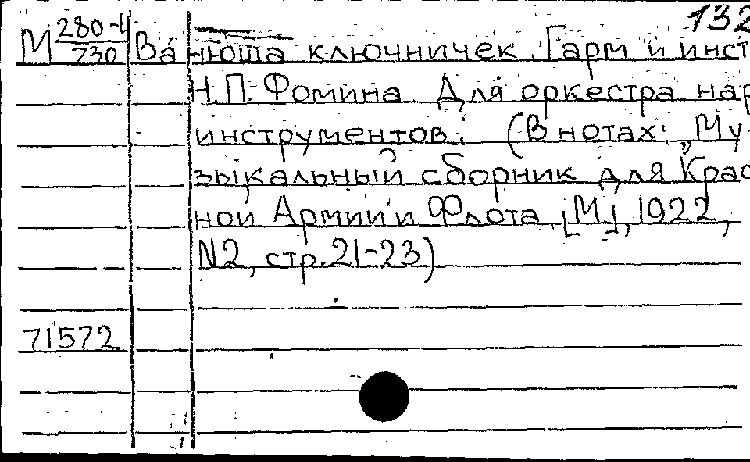 132
М 280-4/730 Ванюша ключничек. Гарм и инст
Н.П. Фомина. Для оркестра нар
инструментов. (В нотах: „Му-
зыкальный сборник для Крас
ной Армии и Флота. [М], 1922,
N2, стр. 21-23)
71572